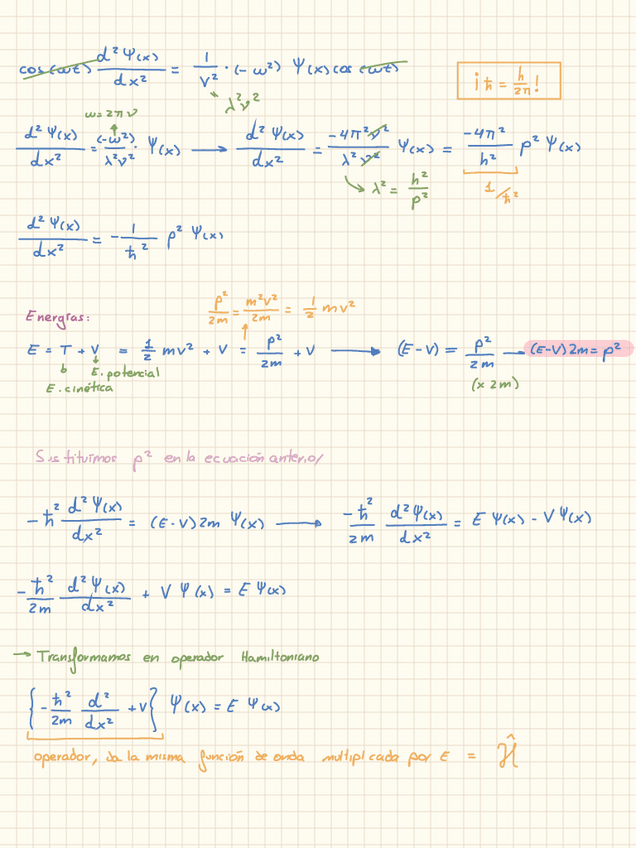 cos(ωt) d²Ψ(x)/dx² = 1/v² · (-ω²) Ψ(x) cos(ωt)
λ²ν²
¡ ħ = h/2π !
ω = 2πν
d²Ψ(x)/dx² = (-ω²)/λ²ν² · Ψ(x) → d²Ψ(x)/dx² = -4π²ν²/λ²ν² Ψ(x) = -4π²/h² p² Ψ(x)
λ² = h²/p²
1/ħ²
d²Ψ(x)/dx² = - 1/ħ² p² Ψ(x)
p²/2m = m²v²/2m = 1/2 mv²
Energías:
E = T + V = 1/2 mv² + V = p²/2m + V → (E-V) = p²/2m — (E-V)2m = p²
E. potencial
E. cinética
(x 2m)
Sustituimos p² en la ecuación anterior
-ħ² d²Ψ(x)/dx² = (E-V)2m Ψ(x) → -ħ²/2m d²Ψ(x)/dx² = E Ψ(x) - V Ψ(x)
-ħ²/2m d²Ψ(x)/dx² + V Ψ(x) = E Ψ(x)
→ Transformamos en operador Hamiltoniano
{-ħ²/2m d²/dx² + V} Ψ(x) = E Ψ(x)
operador, da la misma función de onda multiplicada por E = Ĥ